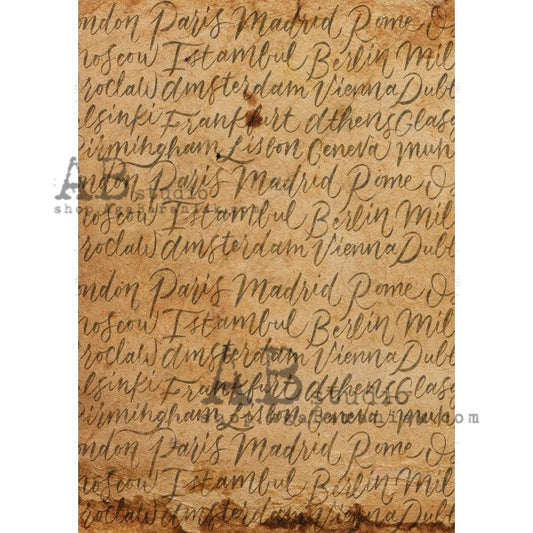 ondon Paris Madrid Rome Os
moscow Istambul Berlin Mil
roclaw Amsterdam Vienna Dubl
elsinki Frankfurt Athens Glasg
Birmingham Lisbon Geneva Mun
AB studio
ondon Paris Madrid Rome Os
moscow Istambul Berlin Mil
roclaw Amsterdam Vienna Dubl
ondon Paris Madrid Rome Os
moscow Istambul Berlin Mil
roclaw Amsterdam Vienna Dubl
elsinki Frankfurt Athens Glasg
AB studio
Birmingham Lisbon Geneva Mun
ondon Paris Madrid Rome Os
moscow Istambul Berlin Mil
roclaw Amsterdam Vienna Dubl